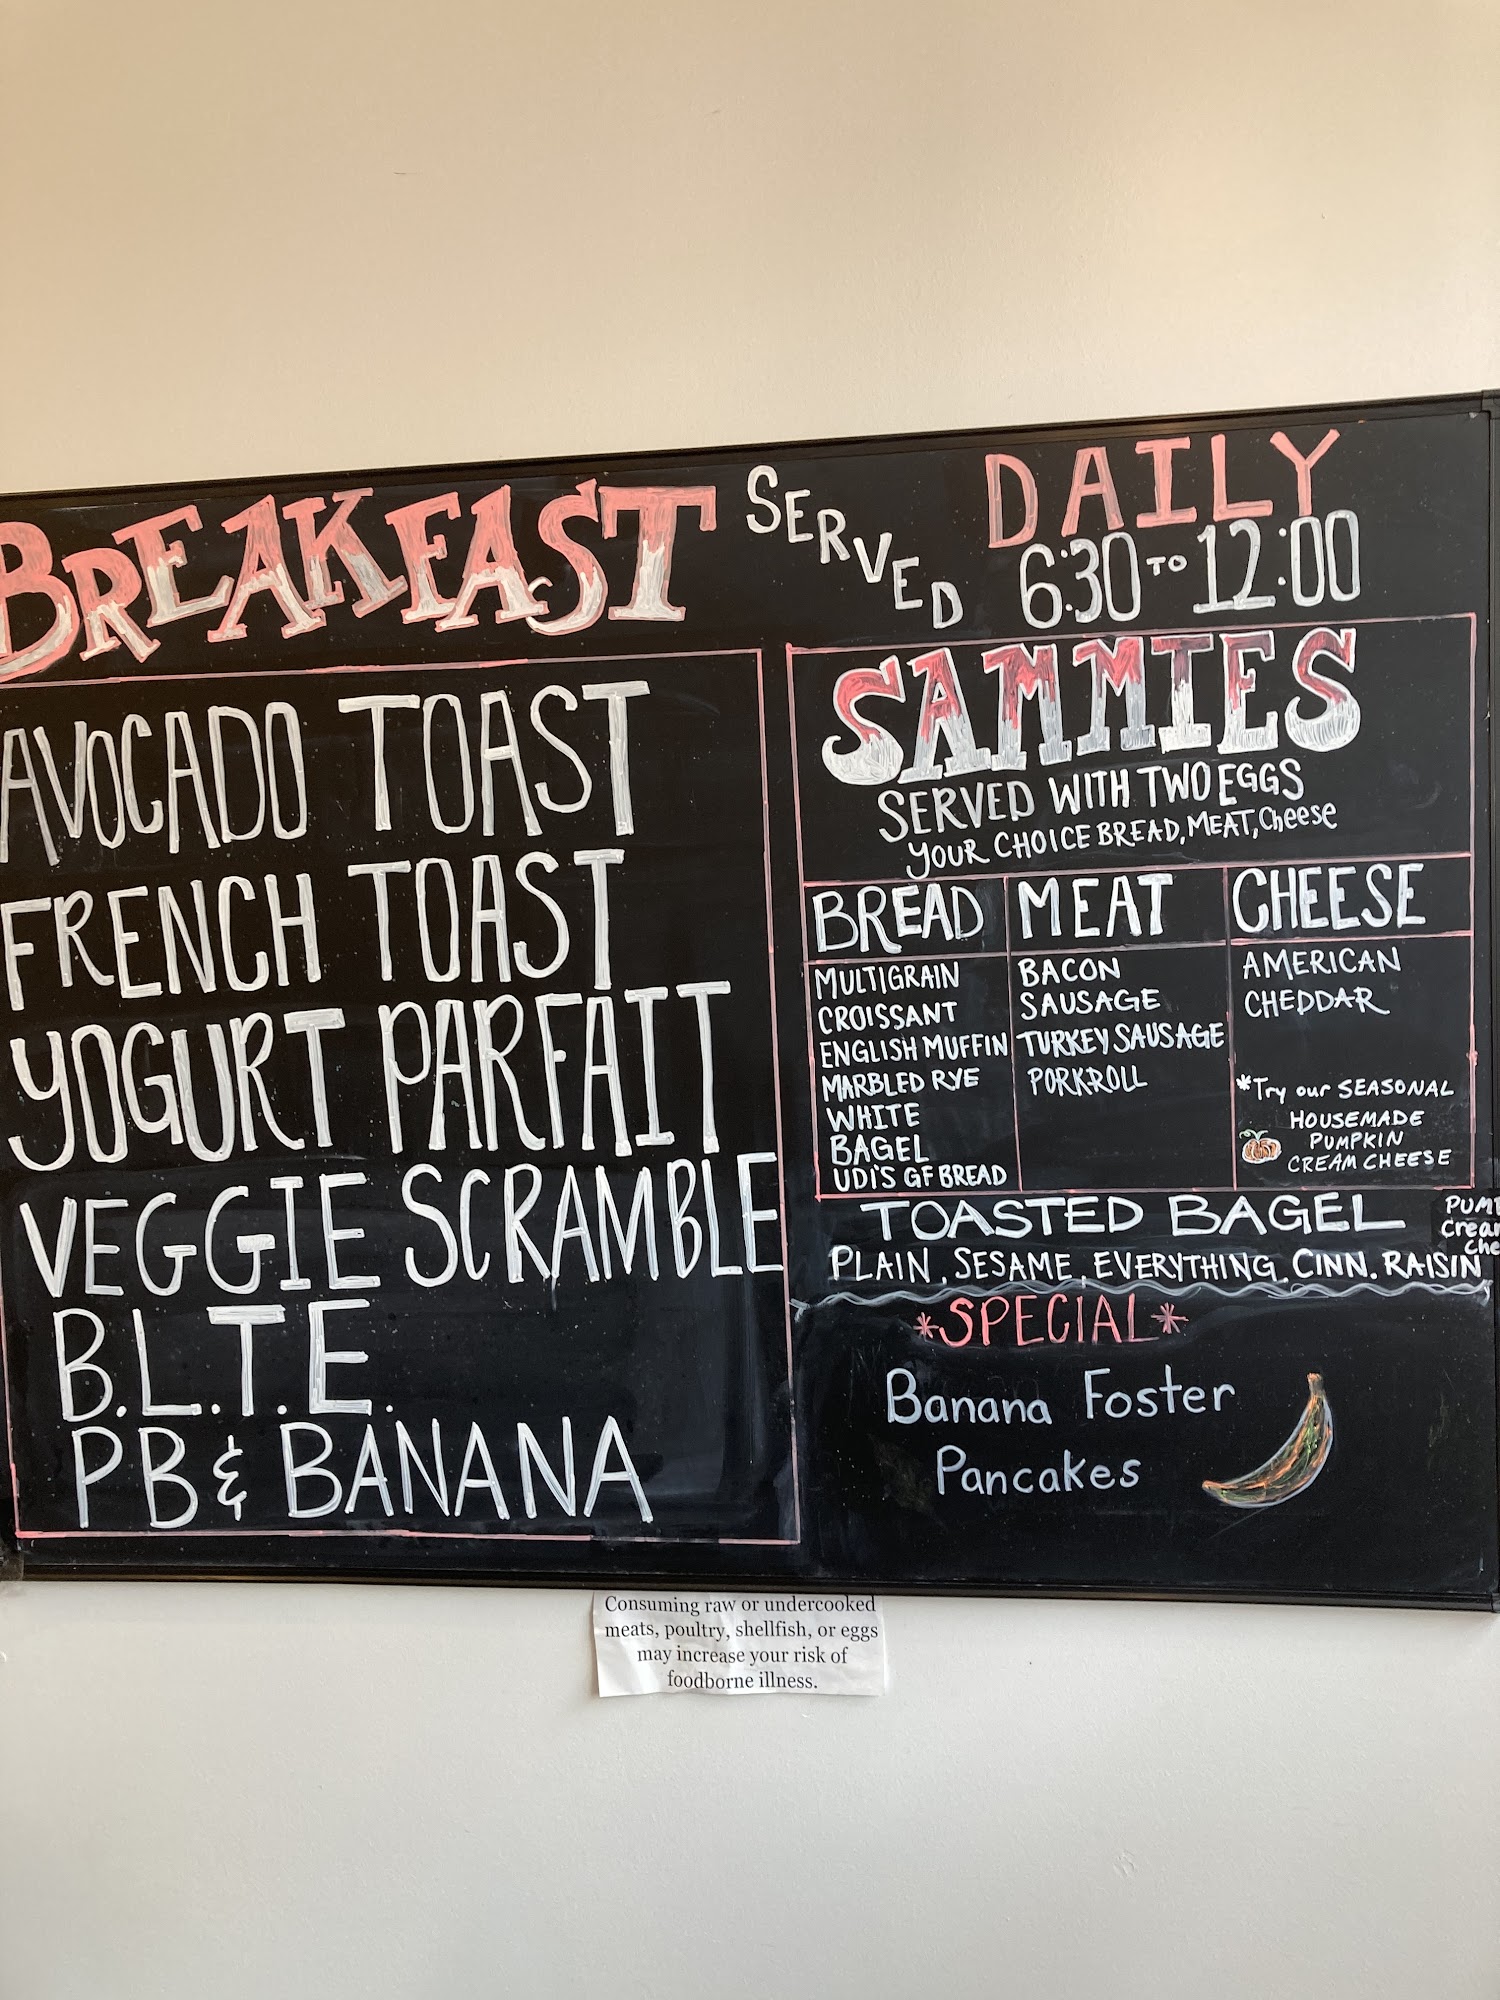 BREAKFAST SERVED DAILY
6:30 TO 12:00
AVOCADO TOAST
FRENCH TOAST
YOGURT PARFAIT
VEGGIE SCRAMBLE
B.L.T.E.
PB & BANANA
SAMMIES
SERVED WITH TWO EGGS
YOUR CHOICE BREAD, MEAT, Cheese
BREAD
MULTIGRAIN
CROISSANT
ENGLISH MUFFIN
MARBLED RYE
WHITE
BAGEL
UDI'S GF BREAD
MEAT
BACON
SAUSAGE
TURKEY SAUSAGE
PORKROLL
CHEESE
AMERICAN
CHEDDAR
*Try our SEASONAL
HOUSEMADE
PUMPKIN
CREAM CHEESE
TOASTED BAGEL
PLAIN, SESAME, EVERYTHING, CINN. RAISIN
*SPECIAL*
Banana Foster
Pancakes
Consuming raw or undercooked
meats, poultry, shellfish, or eggs
may increase your risk of
foodborne illness.